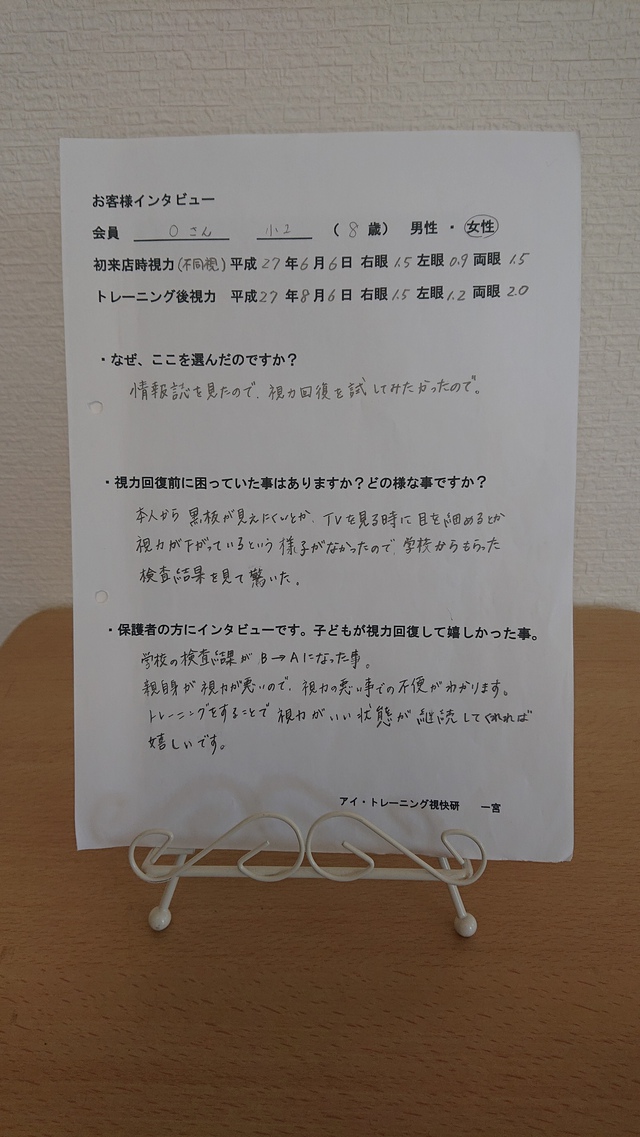 お客様インタビュー
会員 Oさん 小2 (8歳) 男性・女性
初来店時視力(不同視) 平成27年6月6日 右眼1.5 左眼0.9 両眼1.5
トレーニング後視力 平成27年8月6日 右眼1.5 左眼1.2 両眼2.0
・なぜ、ここを選んだのですか?
情報誌を見たので、視力回復を試してみたかったので。
・視力回復前に困っていた事はありますか?どの様な事ですか?
本人から黒板が見えにくいとか、TVを見る時に目を細めるとか
視力が下がっているという様子がなかったので、学校からもらった
検査結果を見て驚いた。
・保護者の方にインタビューです。子どもが視力回復して嬉しかった事。
学校の検査結果がB→Aになった事。
親自身が視力が悪いので、視力の悪い事での不便がわかります。
トレーニングをすることで視力がいい状態が継続してくれれば
嬉しいです。
アイ・トレーニング視快研 一宮